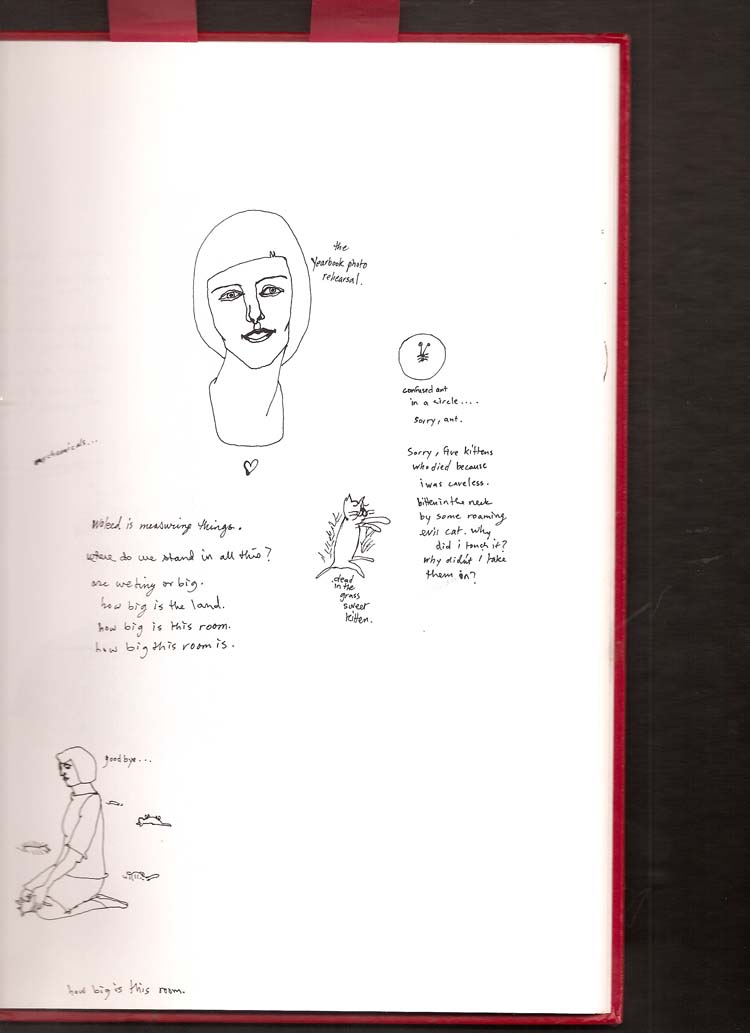 the
yearbook photo
rehearsal.
confused ant
in a circle....
sorry, ant.
Sorry, five kittens
who died because
i was careless.
bitten in the neck
by some roaming
evil cat. Why
did i touch it?
why didn't I take
them in?
dead
in the
grass
sweet
kitten.
is measuring things.
where do we stand in all this?
are we tiny or big.
how big is the land.
how big is this room.
how big this room is.
goodbye...
how big is this room.